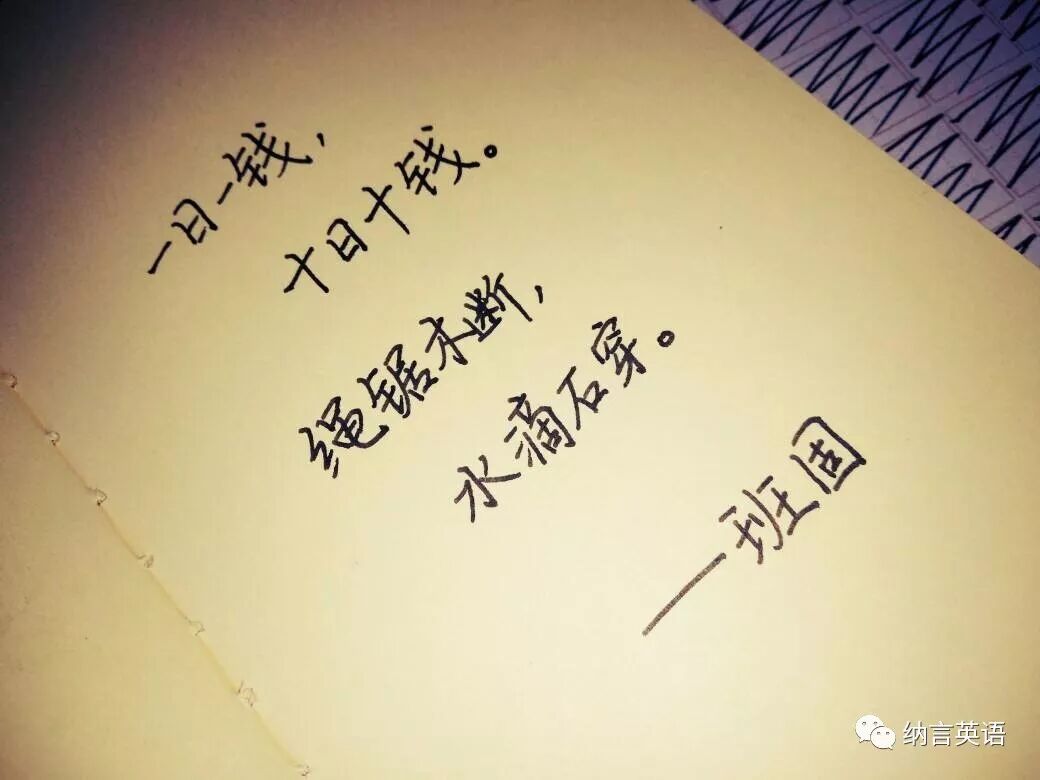 一日一钱，
十日十钱。
绳锯木断，
水滴石穿。
——班固
纳言英语